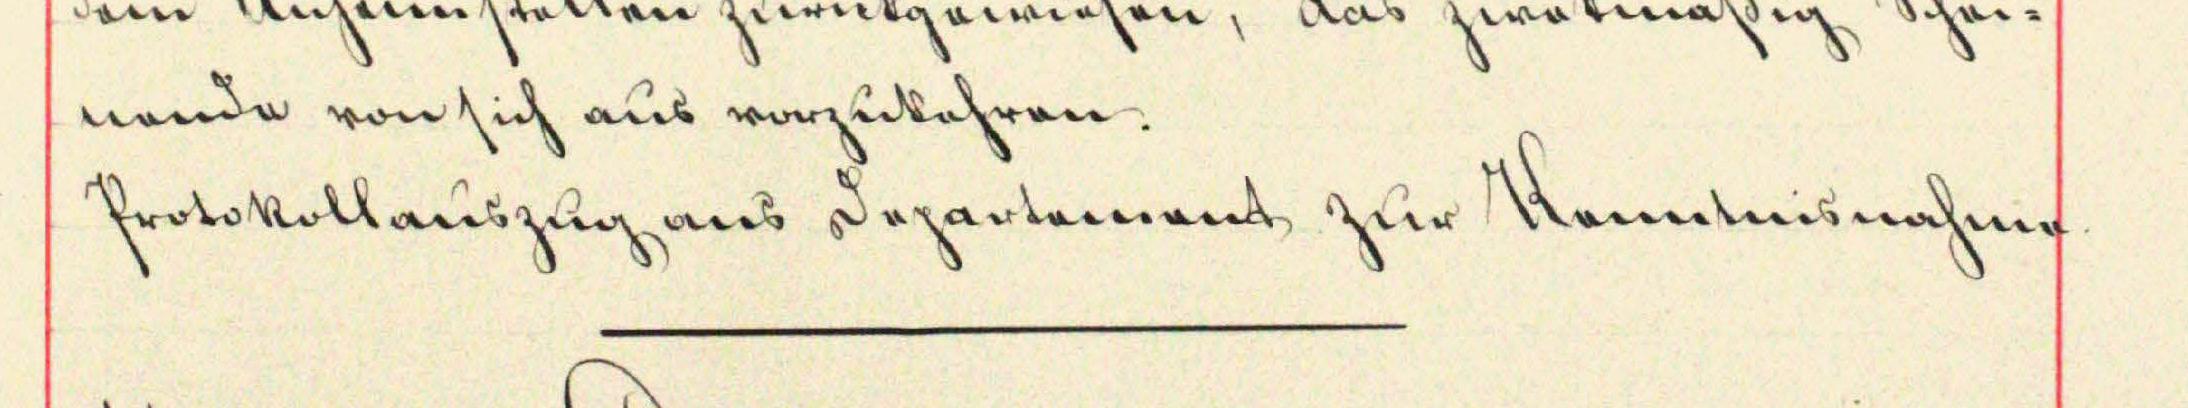 dem Anheimstellen zurückgewiesen, das zwekmäßig Schei-
nende von sich aus vorzukehren.
Protokollauszug ans Departement zur Kenntnisnahme.